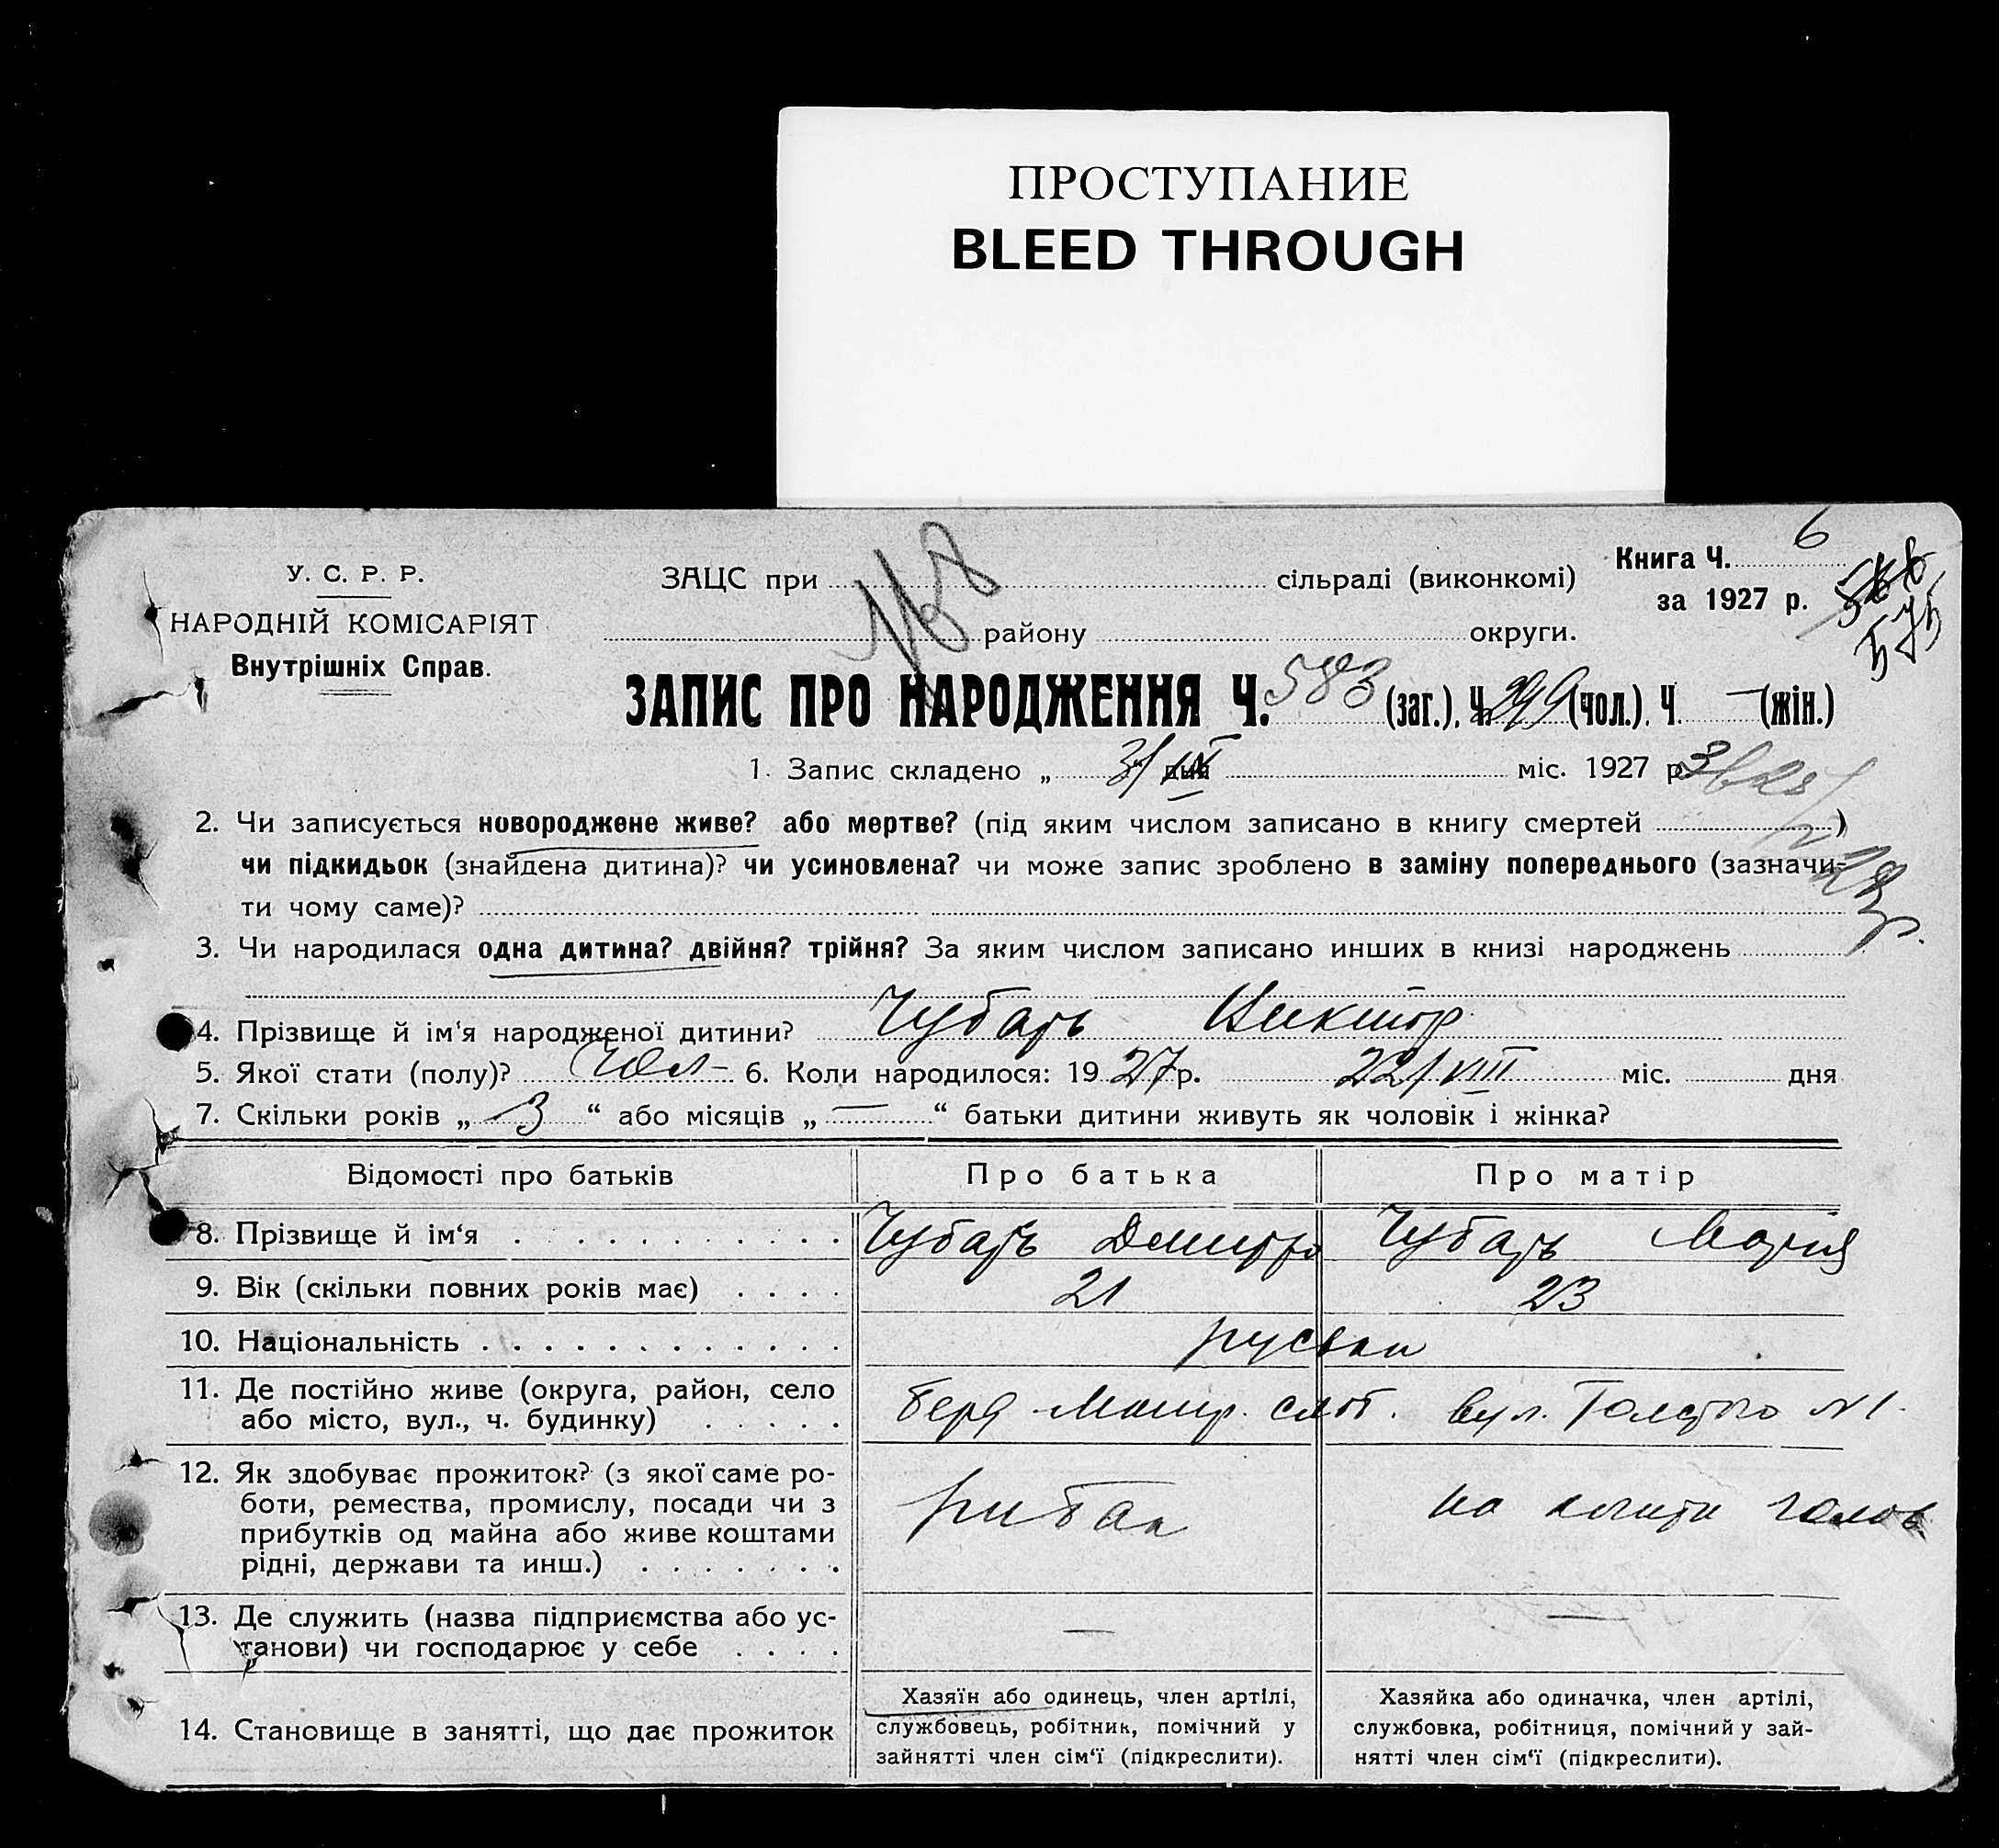 ПРОСТУПАНИЕ
BLEED THROUGH
У. С. Р. Р.
НАРОДНІЙ КОМІСАРІЯТ
Внутрішніх Справ.
ЗАЦС при сільраді (виконкомі)
району округи.
Книга Ч. 6
за 1927 р.
575
№8
ЗАПИС ПРО НАРОДЖЕННЯ Ч. 583 (заг.), Ч. 299 (чол.), Ч. — (жін.)
1. Запис складено „ 3/IX “ дня міс. 1927 р.
2. Чи записується новороджене живе? або мертве? (під яким числом записано в книгу смертей )
чи підкидьок (знайдена дитина)? чи усиновлена? чи може запис зроблено в заміну попереднього (зазначи-
ти чому саме)?
3. Чи народилася одна дитина? двійня? трійня? За яким числом записано инших в книзі народжень
4. Прізвище й ім'я народженої дитини? Чубарь Виктор
5. Якої стати (полу)? Чол– 6. Коли народилося: 1927 р. 22/VIII міс. дня
7. Скільки років „ 3 “ або місяців „ — “ батьки дитини живуть як чоловік і жінка?
Відомості про батьків Про батька Про матір
8. Прізвище й ім'я Чубарь Дмитро Чубарь Марія
9. Вік (скільки повних років має) 21 23
10. Національність руськи
11. Де постійно живе (округа, район, село
або місто, вул., ч. будинку) Берд слоб. вул. Толстого №1.
12. Як здобуває прожиток? (з якої саме ро-
боти, ремества, промислу, посади чи з
прибутків од майна або живе коштами
рідні, держави та инш.)
рибак
на кошти голов
13. Де служить (назва підприємства або ус-
танови) чи господарює у себе — —
14. Становище в занятті, що дає прожиток
Хазяїн або одинець, член артілі,
службовець, робітник, помічний у
зайнятті член сім'ї (підкреслити).
Хазяйка або одиначка, член артілі,
службовка, робітниця, помічний у зай-
нятті член сім'ї (підкреслити).